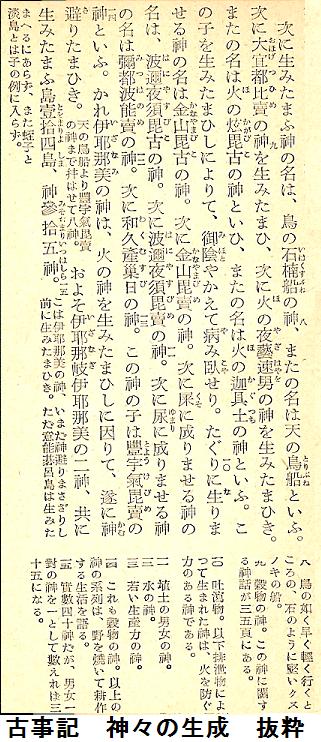 次に生みたまふ神の名は、鳥の石楠船の神八、またの名は天の鳥船といふ。
次に大宜都比賣の神を生みたまひ九、次に火の夜藝速男の神を生みたまひき。
またの名は火の炫毘古の神といひ、またの名は火の迦具土の神といふ。こ
の子を生みたまひしによりて、御陰やかえて病み臥せり。たぐりに生りま
せる神の名は金山毘古の神。次に金山毘賣の神。次に屎に成りませる神の
名は、波邇夜須毘古の神。次に波邇夜須毘賣の神。次に尿に成りませる神
の名は彌都波能賣の神。次に和久産巣日の神。この神の子は豐宇氣毘賣の
神といふ。かれ伊耶那美の神は、火の神を生みたまひしに因りて、遂に神
避りたまひき。天の鳥船より豐宇氣毘賣の神まで并はせて八神。およそ伊耶那岐伊耶那美の二神、共に
生みたまふ島壹拾四島、神參拾五神。こは伊耶那美の神、いまだ神避りまさざりし前に生みたまひき。ただ意能碁呂島は生みた
まへるにあらず、また蛭子と
淡島とは子の例に入らず。
八 鳥の如く早く輕く行くと
ころの、石のように堅いクス
ノキの船。
九 穀物の神。この神に關す
る神話が三五頁にある。
一〇 吐瀉物。以下排泄物によ
つて生まれた神は、火を防ぐ
力のある神である。
一一 埴土の男女の神。
一二 水の神。
一三 若い生産力の神。
一四 これも穀物の神。以上の
神の系列は、野を燒いて耕作
する生活を語る。
一五 實數四十神だが、男女一
對の神を一として數えれば三
十五になる。
古事記 神々の生成 抜粋